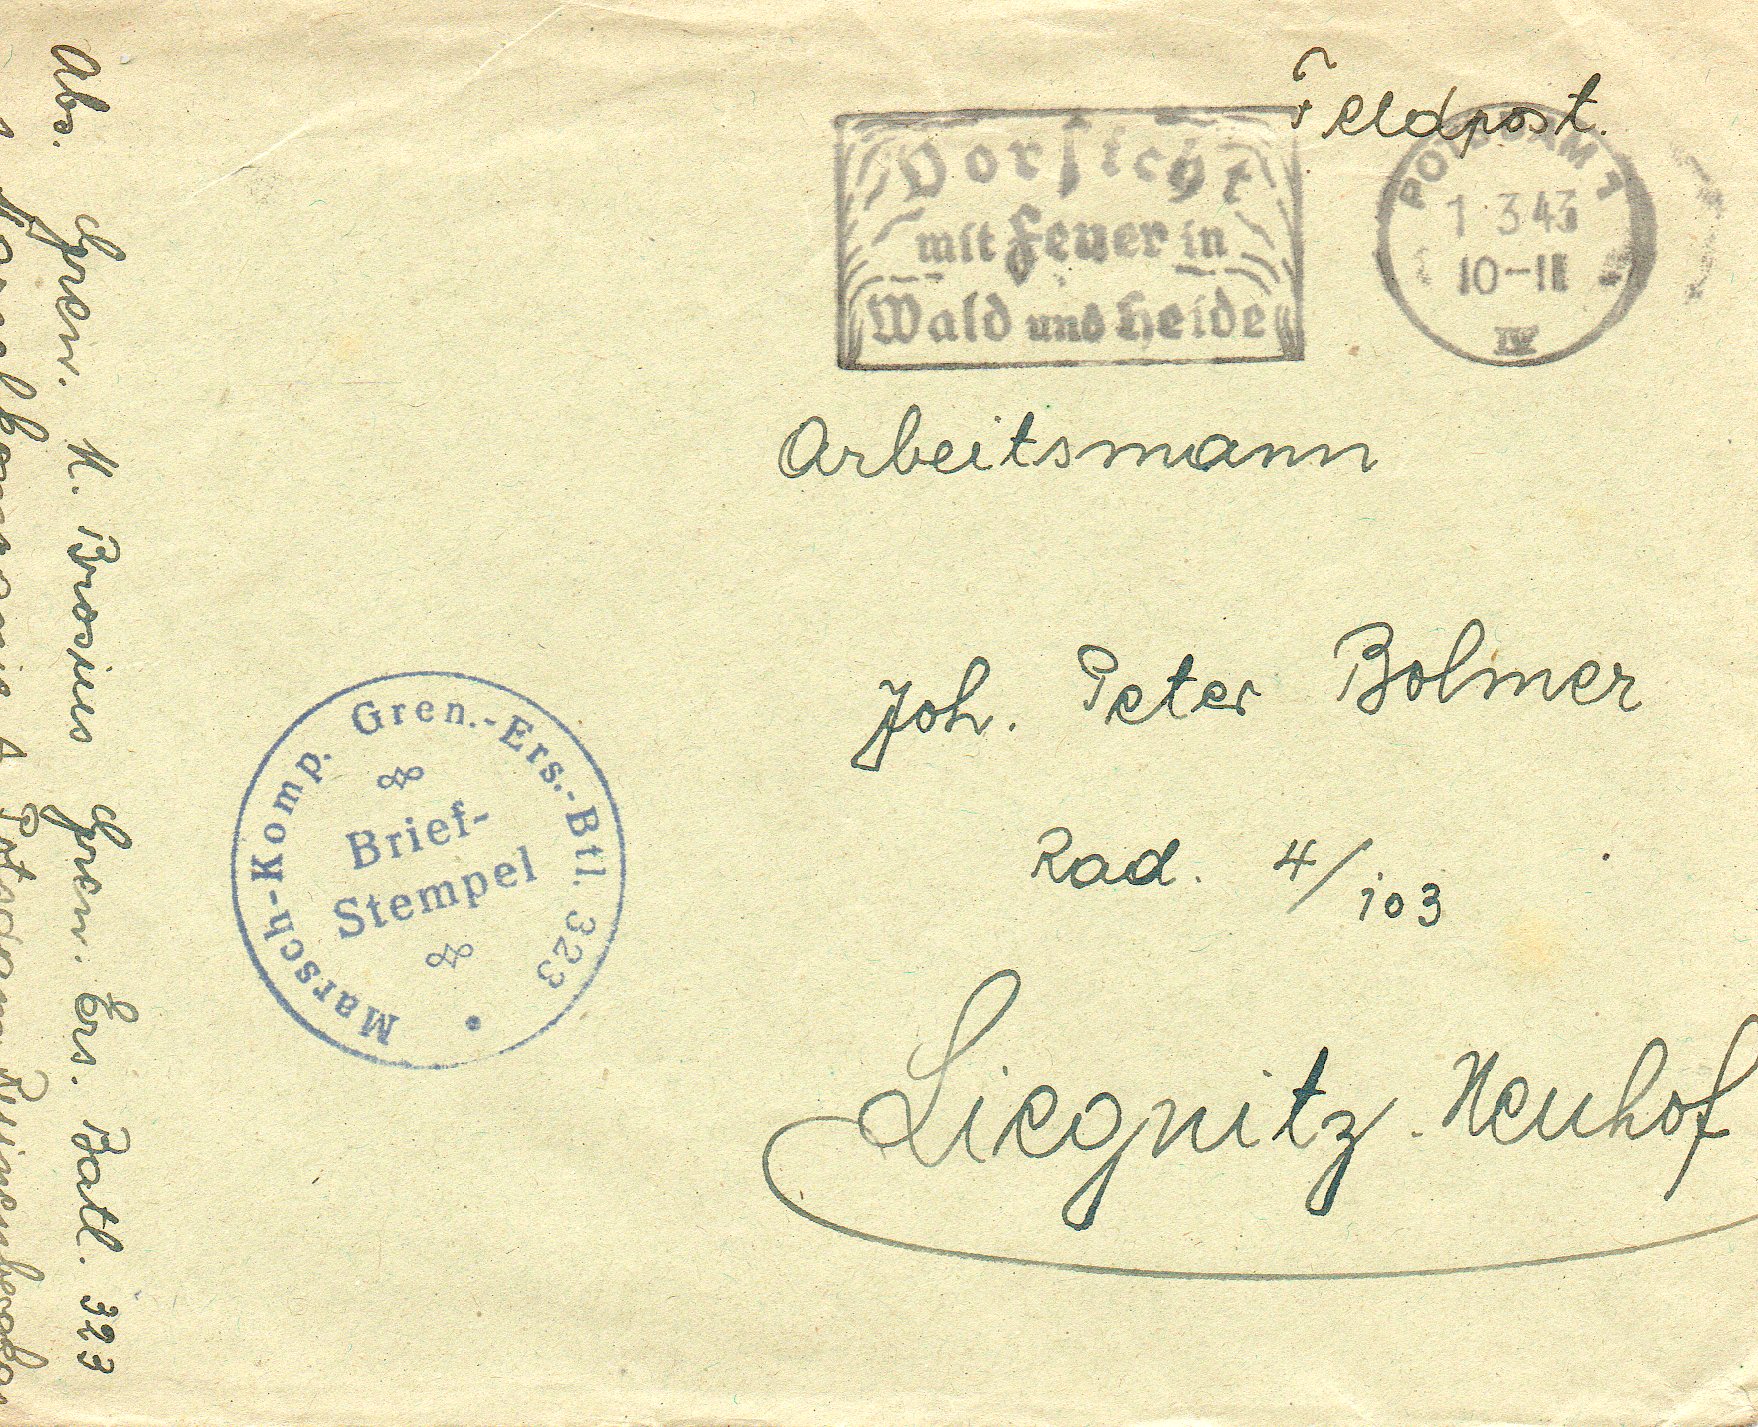 Feldpost.
Vorsicht
mit Feuer in
Wald und Heide
POTSDAM 1
1 3.43
10-11
IV
Arbeitsmann
Joh. Peter Bolmer
Rad. 4/103
Liegnitz-Neuhof
Marsch-Komp. Gren.-Ers.-Btl. 323
Brief-
Stempel
Abs. Gren. N. Brosius Gren. Ers. Batl. 323
Potsdam